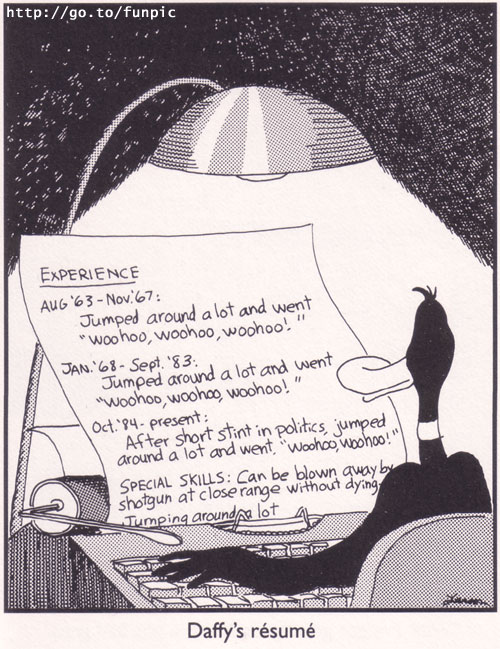 http://go.to/funpic
EXPERIENCE
AUG '63 - NOV. '67:
Jumped around a lot and went
"woohoo, woohoo, woohoo!"
JAN. '68 - Sept. '83:
Jumped around a lot and went
"woohoo, woohoo, woohoo!"
Oct. '84 - present:
After short stint in politics, jumped
around a lot and went, "woohoo, woohoo!"
SPECIAL SKILLS: Can be blown away by
shotgun at close range without dying.
Jumping around a lot
Larson
Daffy's résumé